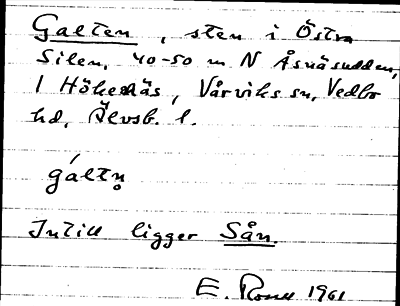 Galten, sten i Östra
Silen, 40-50 m N Åsnäsudden,
1 Hökenäs, Vårviks sn, Vedbo
hd, Älvsb. l.
gáltn̥
Intill ligger Sån.
E. 1961